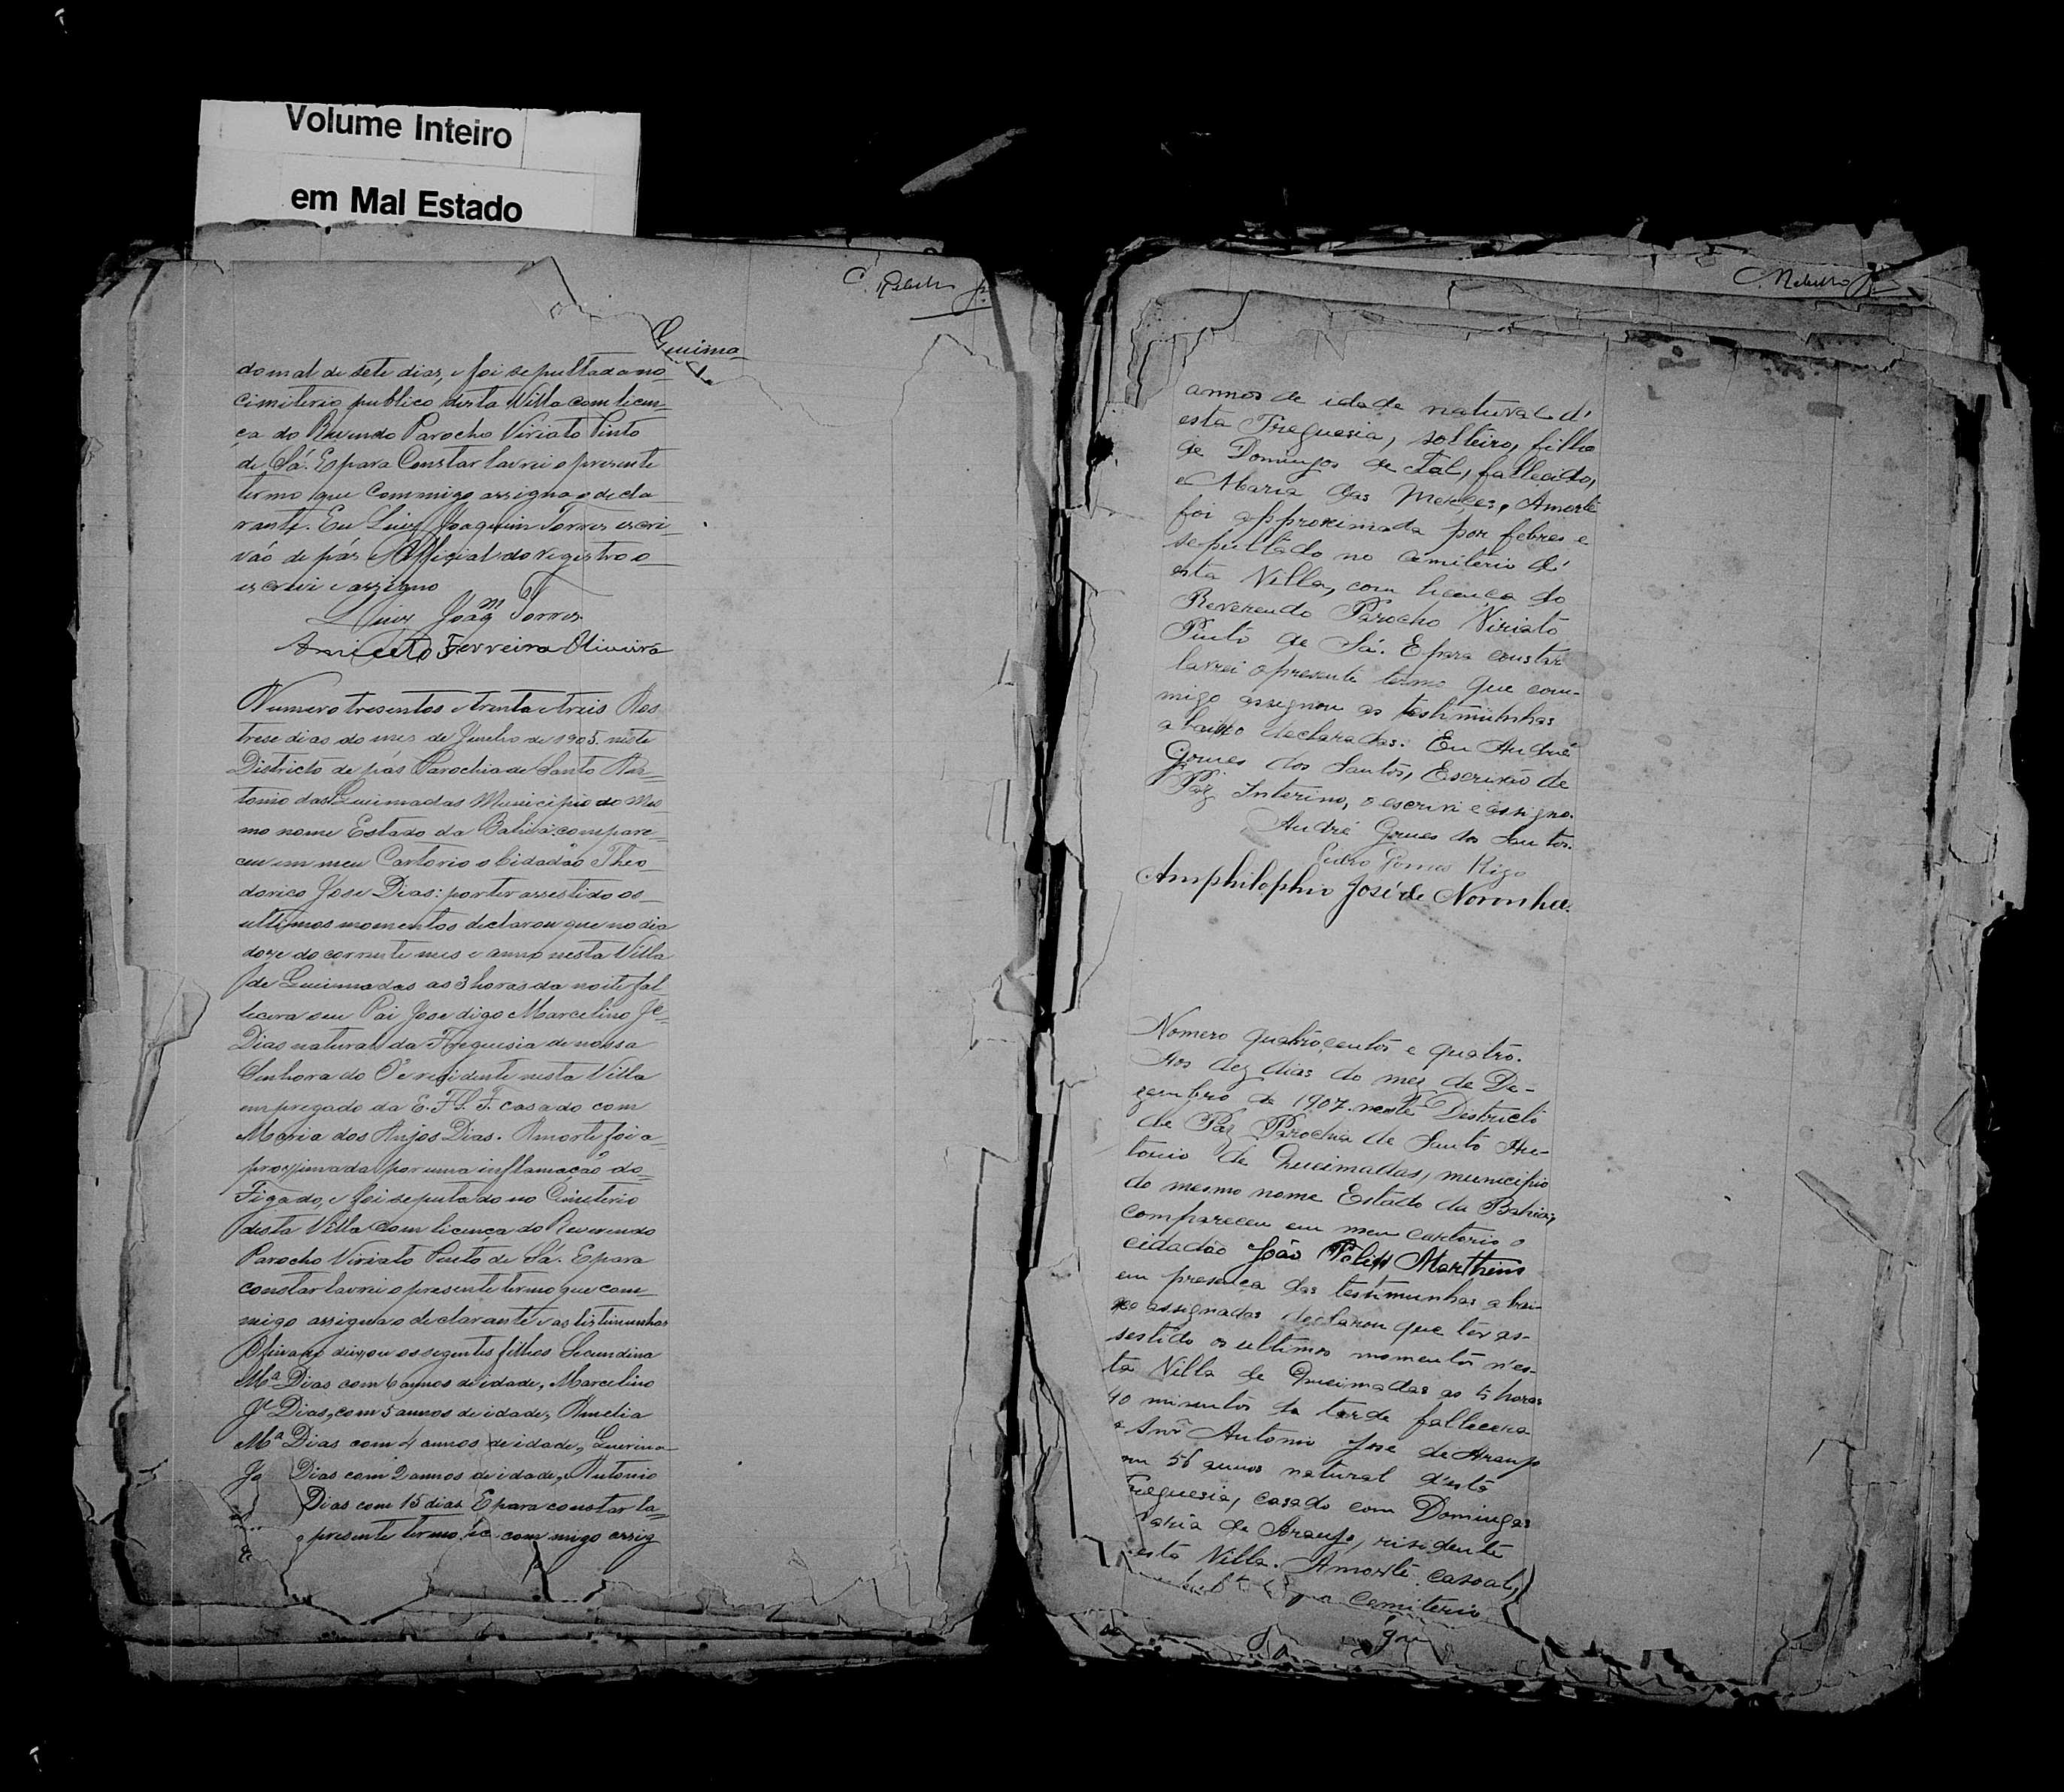 Volume Inteiro
em Mal Estado
C. Rabello Jr.
Gueima
do mal de sete dias, e foi sepultada no
cimiterio publico desta Villa com licen-
ça do Reverndo Parocho Viriato Pinto
de Sá. E para Constar lavrei o presente
termo que Commigo assigna o decla
rante. Eu Luiz Joaquim Torres escri-
vão de páz Official do registro o
escrevi e assigno
Luiz Joaqm Torres
Aniceto Ferreira Oliveira
Numero tresentos e trenta e treis Aos
trese dias do mes de Junho de 1905. neste
Districto de pás Parochia de Santo An-
tonio das Queimadas Municipio do mes
mo nome Estado da Bahia compare-
ceu em meu Cartorio o Cidadão Theo
dorico Jose Dias: por ter assestido os
ultimos momentos declarou que no dia
doze do corrente mes e anno nesta Villa
de Queimadas as 3 horas da noite fal
lecera seu Pai Jose digo Marcelino Je
Dias natural da Freguesia de nossa
Senhora do O' e residente nesta Villa
empregado da E. F. S. F. casado com
Maria dos Anjos Dias. A morte foi a
proximada por uma inflamação do
Figado, e foi seputado no Cimiterio
desta Villa com licença do Reverendo
Parocho Viriato Pinto de Sá. E para
constar lavrei o presente termo que com
migo assigna o declarante e as testimunhas
deixou os segentes filhos Secundina
Ma Dias com 6 annos de idade, Marcelino
Je Dias, com 5 annos de idade, Amelia
Ma Dias com 4 annos de idade, Guerina
Dias com 2 annos de idade, Antonio
Dias com 15 dias. E para constar la-
o presente termo com migo assig
C. Rabello Jr.
annos de idade natural d'
esta Freguesia, solteiro, filho
de Domingos de Tal, fallecido,
e Maria das Merces, A morte
foi approximada por febres e
sepultado no cemiterio d'
esta Villa, com licença do
Reverendo Parocho Viriato
Pinto de Sá. E para constar
lavrei o presente termo que com-
migo assignou as testimunhas
abaixo declaradas. Eu André
Gomes dos Santos, Escrivão de
Paz Interino, o escrivi e assigno.
André Gomes dos Santos.
Pedro Gomes Rigo
Amphilophio José de Noronha.
Nomero quatrocentos e quatro.
Aos dez dias do mez de De-
zembro de 1907. neste Destricto
de Paz Parochia de Santo An-
tonio de Queimadas, municipio
do mesmo nome Estado da Bahia,
compareceu em meu cartorio o
cidadão João Felix Marthins
em presença das testimunhas abai-
xo assignadas declarou que ter as-
sestido os ultimos momentos n'es-
ta Villa de Queimadas as 5 horas
40 minutos da tarde fallecera
o Snr Antonio Jose de Araujo
56 annos natural d'esta
Freguesia, casado com Domingas
Maria de Araujo, risidente
esta Villa. A morte casoal,
Cemiterio